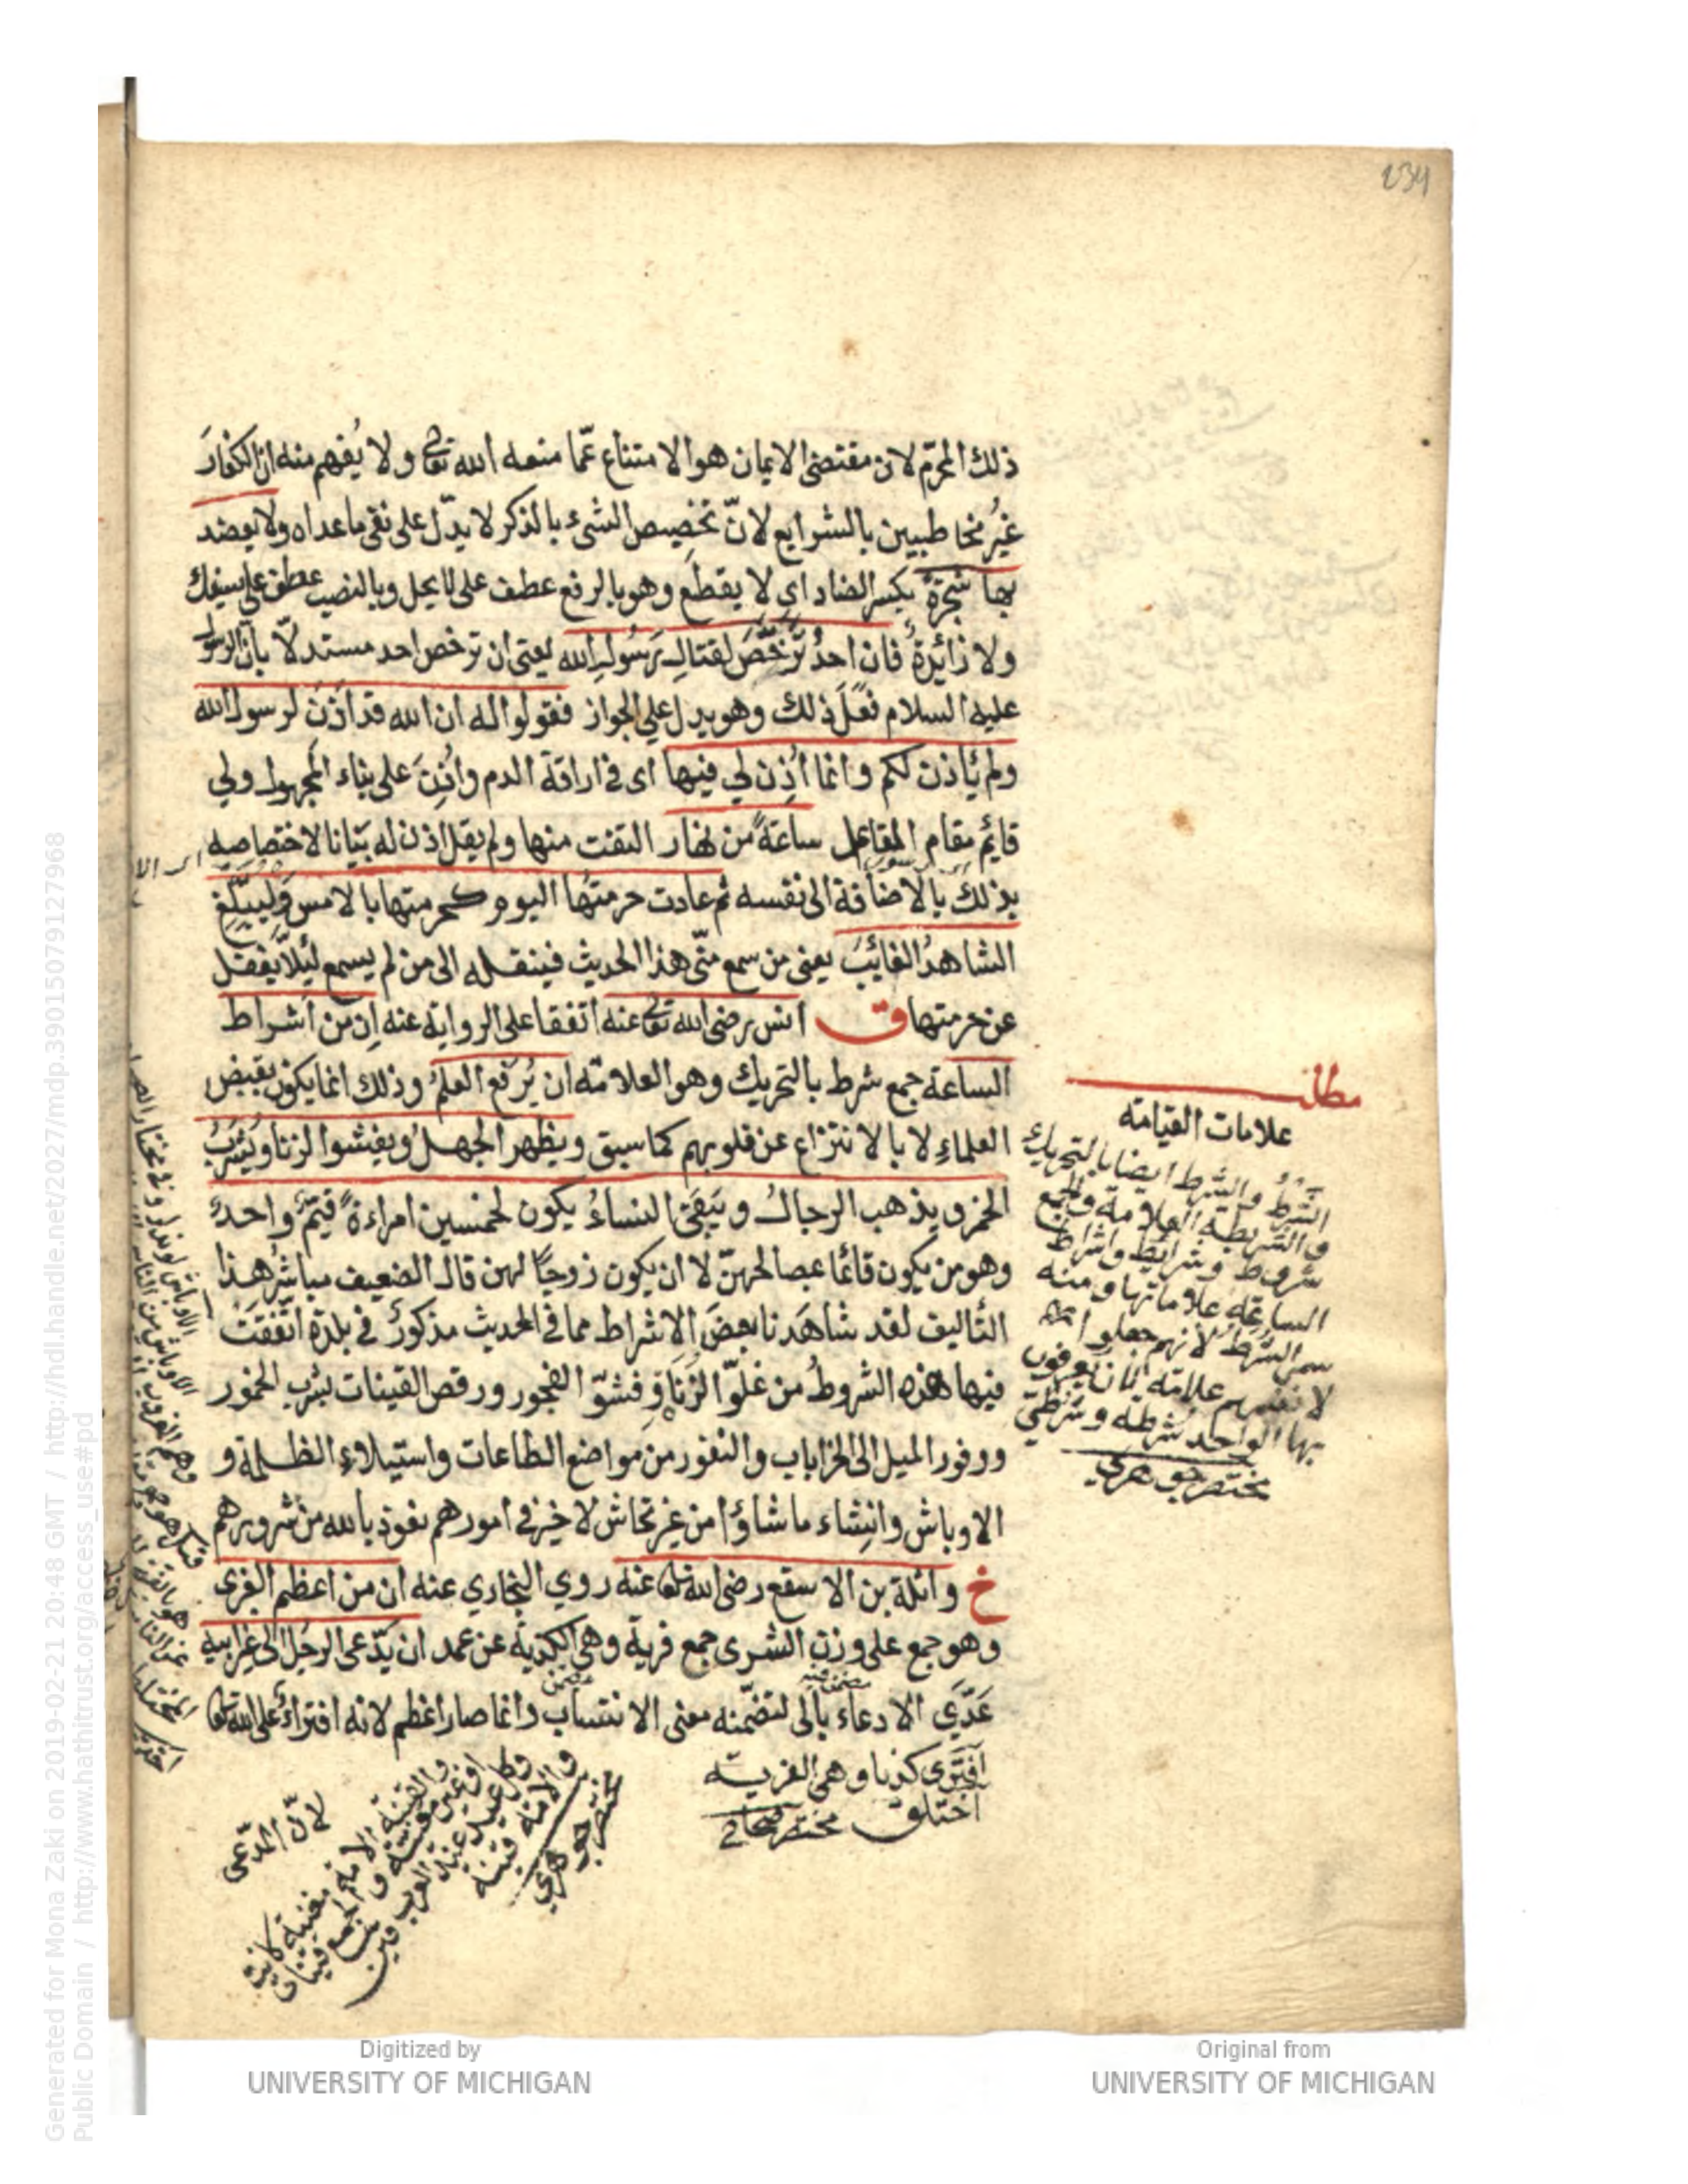 234
ذلك المحرّم لان مقتضى الايمان هو الامتناع عمّا منعه الله تعالى ولا يُفهم منه ان الكفارَ
غيرُ مخاطبين بالشرايع لانّ تخصيص الشىء بالذكر لا يدّل على نفى ماعداه ولا يعضد
بها شجرةً بكسر الضاد اى لا يقطَع وهو بالرفع عطف على لا يحل وبالنصب عطف على يسفك
ولا زائدةٌ فان احدٌ ترخَّصَ لقتالِ رَسُولِ الله يعنى ان ترخص احد مستدلاّ بان الرسول
عليه السلام فعَلَ ذلك وهو يدل على الجواز فقولوا له ان الله قد اَذِنَ لرسول الله
ولم يَأذن لكم وانما اُذِن لي فيها اى فى اراقة الدم واُذِنَ على بناء المجهول ولي
قائم مقام الفاعل ساعةً من نهار التفت منها ولم يقل اذن له بيَانا لاختصاصه
بذلك بالاضافة الى نفسه ثم عادت حرمتها اليوم كحرمتها بالامس وَليبلّغ
الشاهدُ الغائبَ يعنى من سمع منّى هذا الحديث فينقله الى من لم يسمع لئلاّ يغفل
عن حرمتها ق انس رضى الله تعالى عنه اتفقا على الرواية عنه اِن من اشراط
الساعة جمع شرط بالتحريك وهو العلامة ان يُرفع العلمُ وذلك انما يكون بقبض
العلماءِ لا بالانتزاع عن قلوبهم كما سبق ويظهر الجهلُ ويفشوا الزنا ويُشربُ
الخمر ويذهب الرجالُ ويَبقى النساءُ يكون لخمسين امراءةً قيّمٌ واحدٌ
وهو من يكون قائما عصالحهنّ لا ان يكون زوجًا لهن قال الضعيف مباشرُ هذا
التاليف لقد شاهَدنا بعضَ الاشراط مما فى الحديث مذكورٌ فى بلدة اتّفقَتْ
فيها هذه الشروطُ من غلوّ الزنَا وفشوّ الفجور ورقص القينات بشرب الخمور
ووفور الميل الى الخرابات والنفور من مواضع الطاعات واستيلاءِ الظلمة و
الاوباش وانشاء ماشاؤا من غير تحاش لا خيرَ فى امورهم نعوذ بالله من شرورهم
خ واثلة بن الاسقع رضى الله تعالى عنه روي البخاري عنه ان من اعظم الفرى
وهو جمع على وزن الشرى جمع فرية وهى الكذبة عن عمد ان يدّعى الرجُل الى غير ابيه
عَدَّي الادعاءَ بالى لتضمّنه معنى الانتساب وانما صار اعظم لانه افتراءٌ على الله تعالى
مطلب
علامات القيامة
الشَّرْطُ والشَّرَط ايضا بالتحريك
والشريطة العلامة والجمع
شروط وشرائط واشراط
الساعة علاماتها ومنه
سمى الشُرَط لانهم جعلوا
لانفسهم علامة يعرفون
بها الواحد شُرْطة وشرطيّ
مختصر جوهري
افترى كذبا وهى الفرية
اختلق مختصر صحاح
لانّ المدّعى
والقينة الامة مغنية كانت
او غير مغنية والجمع قينات
وكل عبد عند العرب قين
والامة قينة
مختصر جوهري
Generated for Mona Zaki on 2019-02-21 20:48 GMT / http://hdl.handle.net/2027/mdp.39015079127968
Public Domain / http://www.hathitrust.org/access_use#pd
Digitized by
UNIVERSITY OF MICHIGAN
Original from
UNIVERSITY OF MICHIGAN